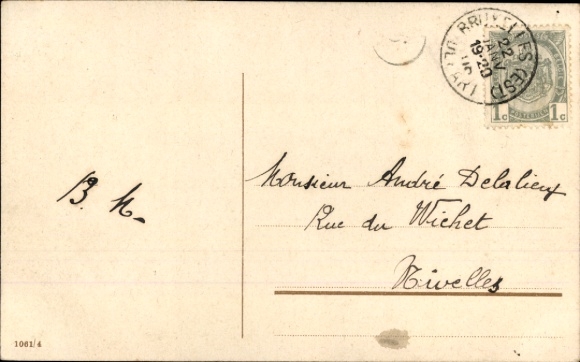 BRUXELLES (EST)
22
JANV
19-20
1c 1c
B. N.
Monsieur André Delalieux
Rue du Wichet
Nivelles
1061/4